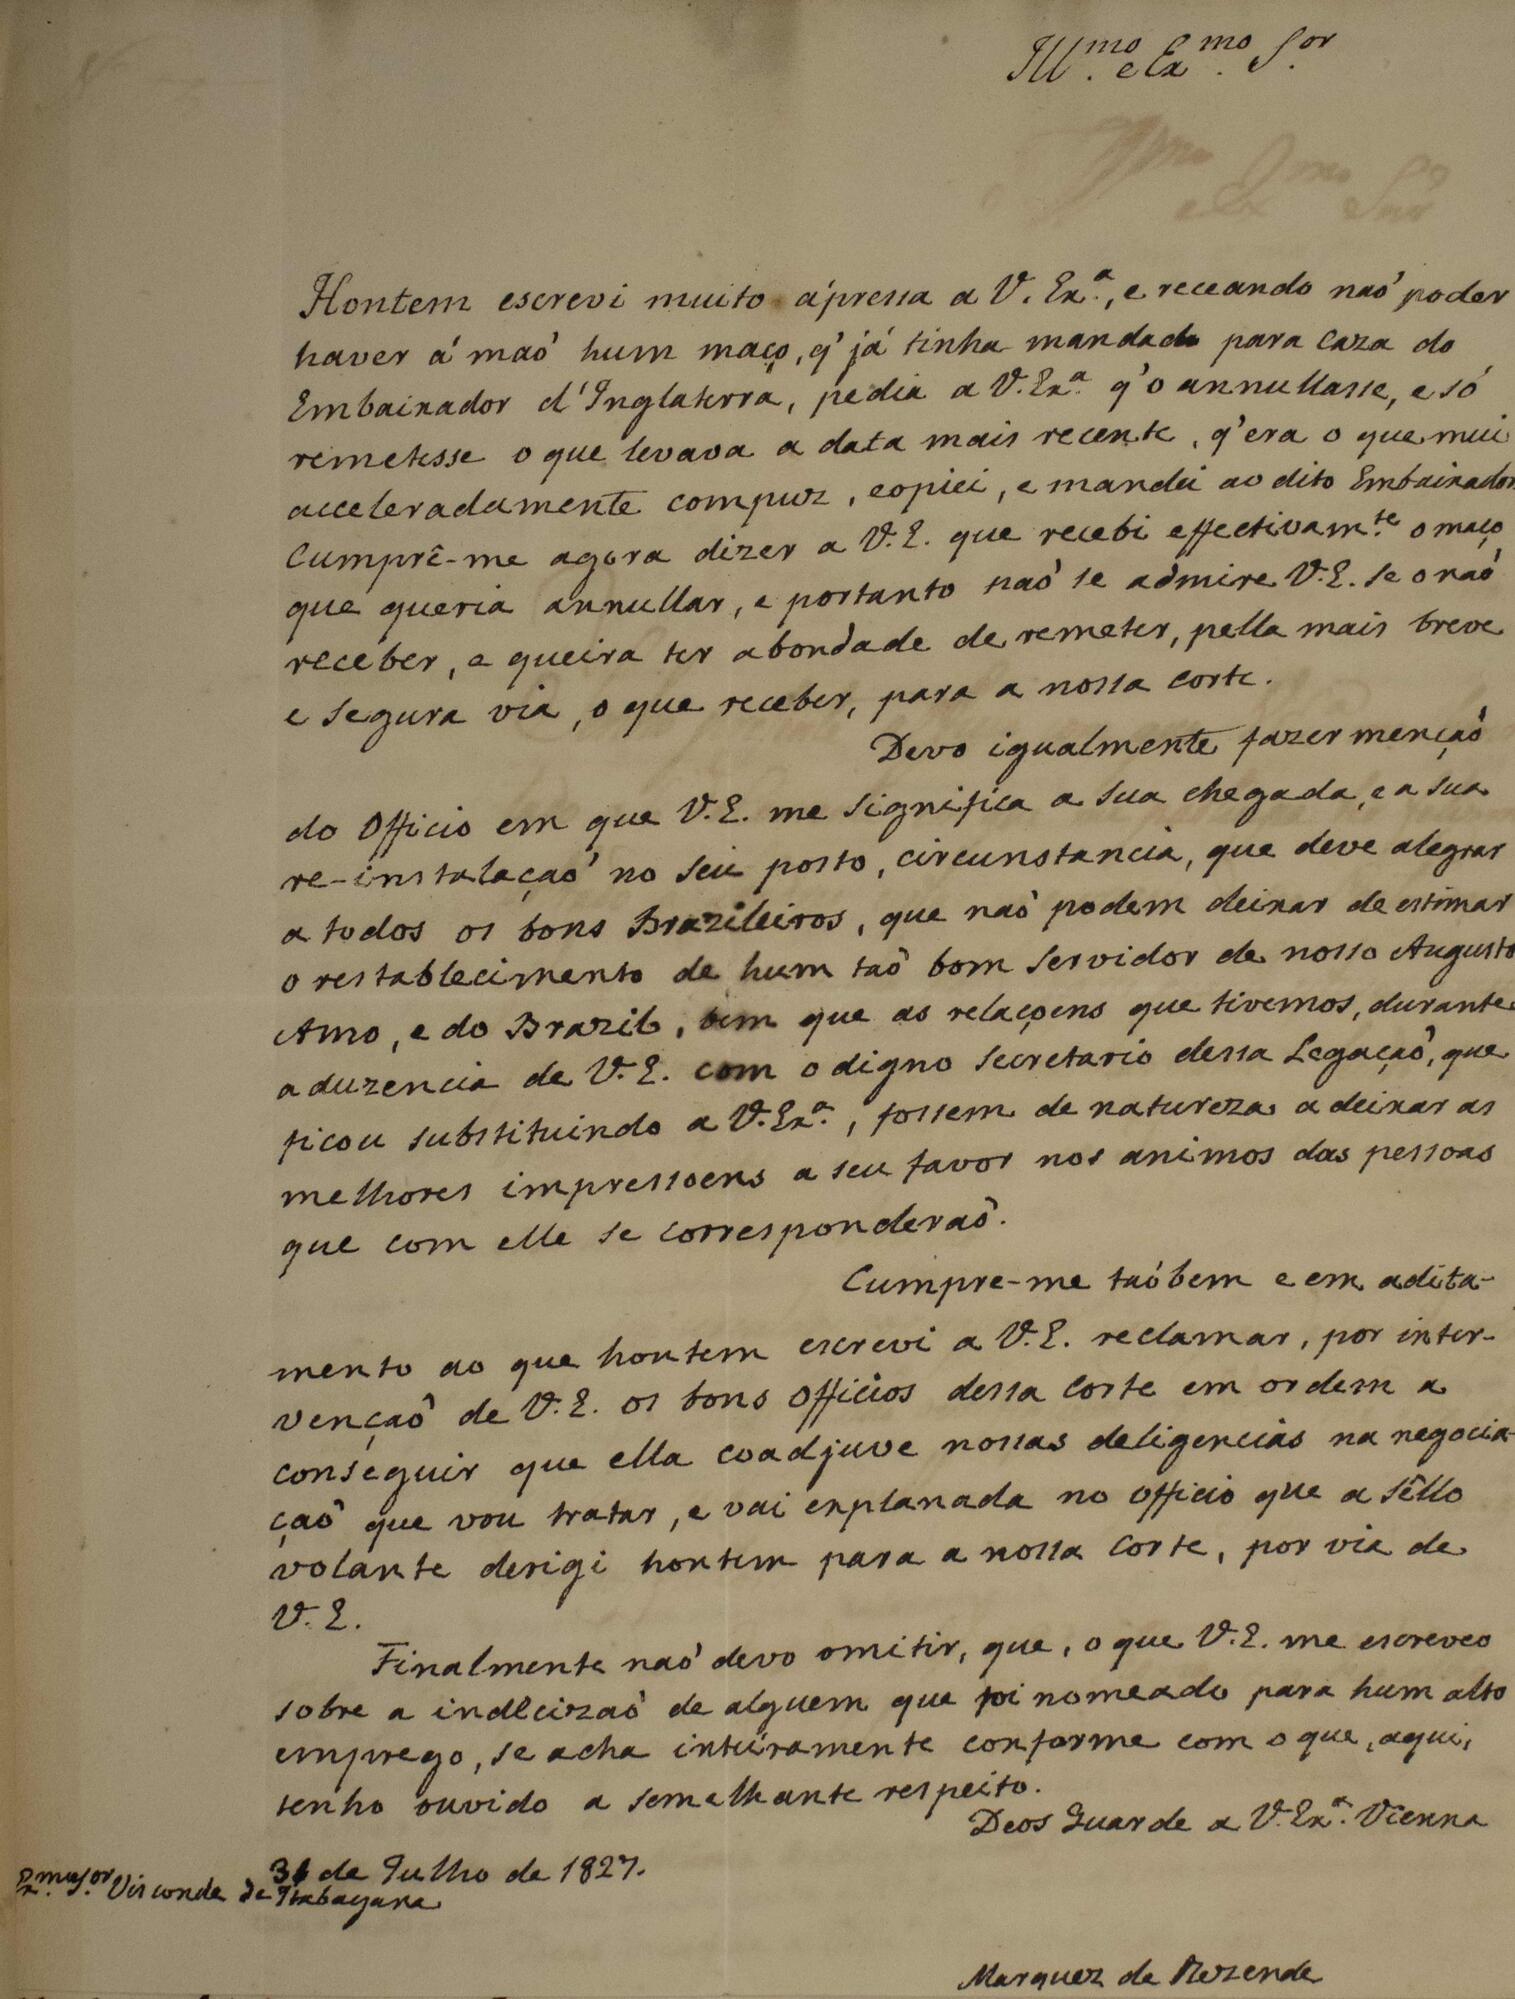 Ill.mo e Ex.mo S.or
Hontem escrevi muito ápressa a V. Ex.a, e receando naõ poder
haver á maõ hum maço, q' já tinha mandado para caza do
Embaixador d'Inglaterra, pedia a V. Ex.a q' o annullasse, e só
remetesse o que levava a data mais recente, q' era o que mui
acceleradamente compuz, copiei, e mandei ao dito Embaixador
Cumprê-me agora dizer a V. E. que recebi effectivam.te o maço
que queria annullar, e portanto naõ se admire V. E. se o naõ
receber, e queira ter a bondade de remeter, pella mais breve
e segura via, o que receber, para a nossa corte.
Devo igualmente fazer mençaõ
do Officio em que V. E. me significa a sua chegada, e a sua
re-instalaçaõ no seu posto, circunstancia, que deve alegrar
a todos os bons Brazileiros, que naõ podem deixar de estimar
o restablecimento de hum taõ bom servidor de nosso Augusto
Amo, e do Brazil, bem que as relaçoens que tivemos, durante
a auzencia de V. E. com o digno secretario dessa Legaçaõ, que
ficou substituindo a V. Ex.a, fossem de natureza a deixar as
melhores impressoens a seu favor nos animos das pessoas
que com elle se corresponderaõ.
Cumpre-me taõbem e em adita-
mento ao que hontem escrevi a V. E. reclamar, por inter-
vençaõ de V. E. os bons officios dessa Corte em ordem a
conseguir que ella coadjuve nossas deligencias na negocia-
çaõ que vou tratar, e vai explanada no officio que a sêllo
volante derigi hontem para a nossa Corte, por via de
V. E.
Finalmente naõ devo omitir, que, o que V. E. me escreveo
sobre a indecizaõ de alguem que foi nomeado para hum alto
emprego, se acha inteiramente conforme com o que, aqui,
tenho ouvido a semelhante respeito.
Deos Guarde a V. Ex.a Vienna
31 de Julho de 1827.
S.or Visconde de Itabayana
Marquez de Rezende